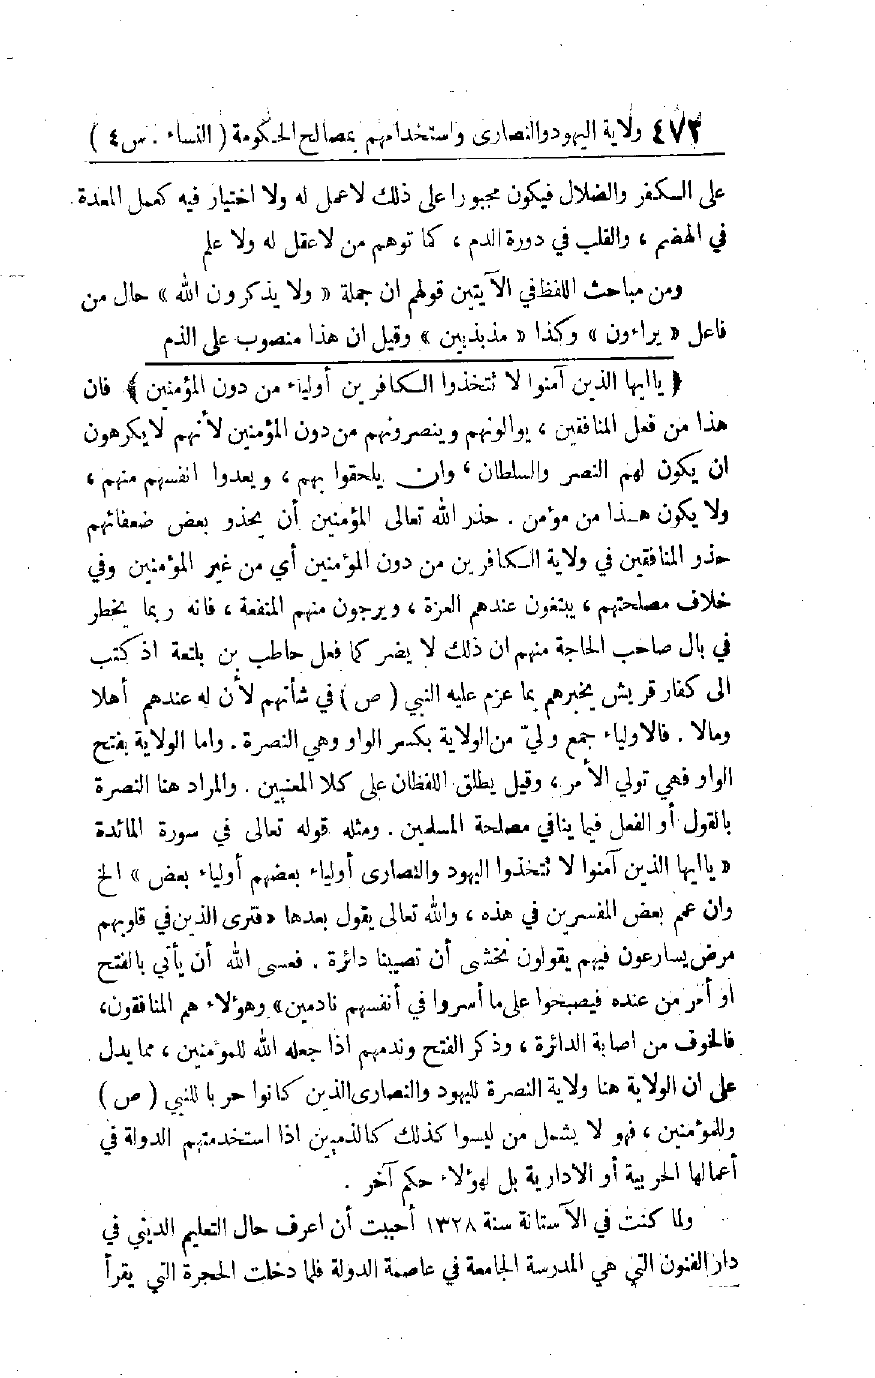 ٤٧٢ ولاية اليهود والنصارى واستخدامهم بمصالح الحكومة ( النساء . س ٤ )
على الكفر والضلال فيكون مجبورا على ذلك لا عمل له ولا اختيار فيه كعمل المعدة
في الهضم ، والقلب في دورة الدم ، كما توهم من لا عقل له ولا علم
ومن مباحث اللفظ في الآيتين قولهم ان جملة « ولا يذكرون الله » حال من
فاعل « يراءون » وكذا « مذبذبين » وقيل ان هذا منصوب على الذم
﴿ يا ايها الذين آمنوا لا تتخذوا الكافرين أولياء من دون المؤمنين ﴾ فان
هذا من فعل المنافقين ، يوالونهم وينصرونهم من دون المؤمنين لأنهم لا يكرهون
ان يكون لهم النصر والسلطان ، وان يلحقوا بهم ، ويعدوا انفسهم منهم ،
ولا يكون هذا من مؤمن . حذر الله تعالى المؤمنين أن يحذو بعض ضعفائهم
حذو المنافقين في ولاية الكافرين من دون المؤمنين أي من غير المؤمنين وفي
خلاف مصلحتهم ، يبتغون عندهم العزة ، ويرجون منهم المنفعة ، فانه ربما يخطر
في بال صاحب الحاجة منهم ان ذلك لا يضر كما فعل حاطب بن بلتعة اذ كتب
الى كفار قريش يخبرهم بما عزم عليه النبي ( ص ) في شأنهم لأن له عندهم أهلا
ومالا . فالاولياء جمع وليّ من الولاية بكسر الواو وهي النصرة . واما الولاية بفتح
الواو فهي تولي الأمر ، وقيل يطلق اللفظان على كلا المعنيين . والمراد هنا النصرة
بالقول أو الفعل فيما ينافي مصلحة المسلمين . ومثله قوله تعالى في سورة المائدة
« يا ايها الذين آمنوا لا تتخذوا اليهود والنصارى أولياء بعضهم أولياء بعض » الخ
وان عم بعض المفسرين في هذه ، والله تعالى يقول بعدها « فترى الذين في قلوبهم
مرض يسارعون فيهم يقولون نخشى أن تصيبنا دائرة . فعسى الله أن يأتي بالفتح
او أمر من عنده فيصبحوا على ما أسروا في أنفسهم نادمين » وهؤلاء هم المنافقون ،
فالخوف من اصابة الدائرة ، وذكر الفتح وندمهم اذا جعله الله للمؤمنين ، مما يدل
على ان الولاية هنا ولاية النصرة لليهود والنصارى الذين كانوا حربا للنبي ( ص )
وللمؤمنين ، فهو لا يشمل من ليسوا كذلك كالذميين اذا استخدمتهم الدولة في
أعمالها الحربية أو الادارية بل لهؤلاء حكم آخر .
ولما كنت في الآستانة سنة ١٣٢٨ أحببت أن اعرف حال التعليم الديني في
دار الفنون التي هي المدرسة الجامعة في عاصمة الدولة فلما دخلت الحجرة التي يقرأ